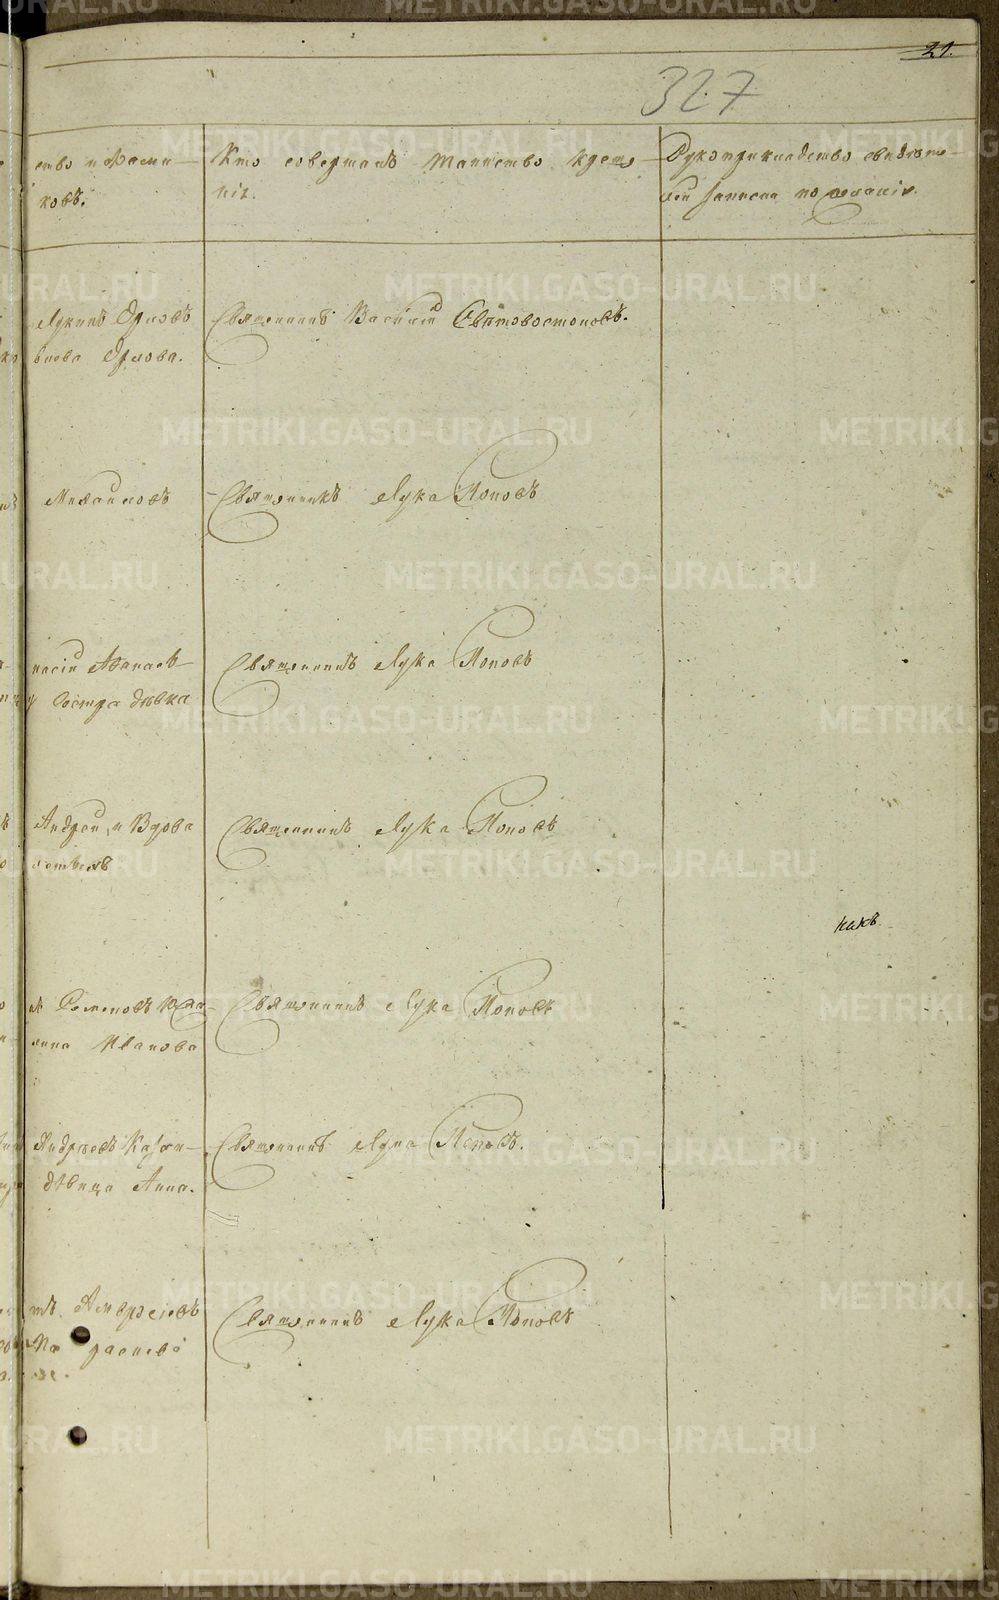 21.
327
ство и фами-
ковъ.
Кто совершалъ таинство креще-
нія.
Рукоприкладство свидѣте-
лей записи по желанію.
Орловъ
Орлова.
Священникъ Василій Святовостоковъ.
Михаиловъ
Священникъ Лука Поповъ
насій Аѳанась-
Сестра дѣвка
Священникъ Лука Поповъ
Андрей, и Вдова
Священникъ Лука Поповъ
какъ
Иванова
Священникъ Лука Поповъ
Андреевъ
дѣвица Анна.
Священникъ Лука Поповъ.
Священникъ Лука Поповъ
METRIKI.GASO-URAL.RU